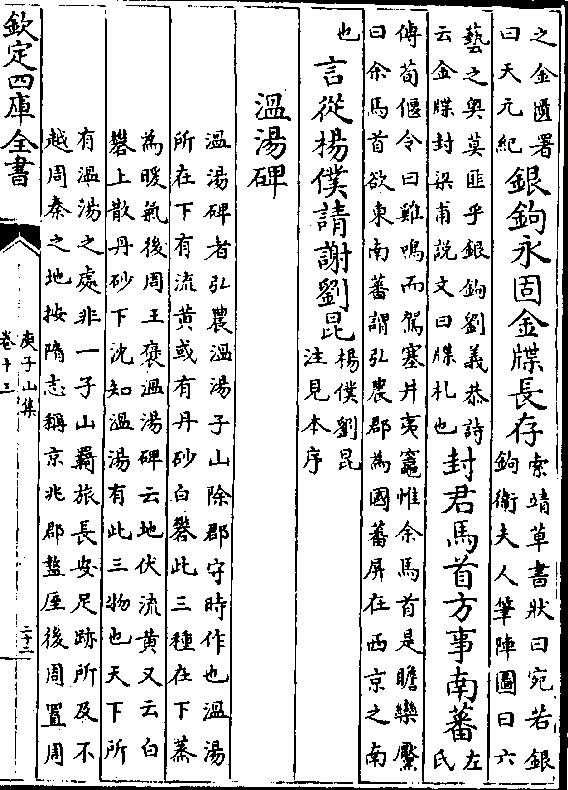 之金匱署
曰天元紀
銀鉤永固金牒長存
索靖草書狀曰宛若銀
鉤衛夫人筆陣圖曰六
藝之奧莫匪乎銀鉤劉義恭詩
云金牒封梁甫説文曰牒札也
封君馬首方事南蕃
左
氏
傳荀偃令曰雞鳴而駕塞井夷竈惟余馬首是瞻欒黶
曰余馬首欲東南蕃謂弘農郡為國蕃屏在西京之南
也
言從楊僕請謝劉昆
楊僕劉昆
注見本序
溫湯碑
溫湯碑者弘農溫湯子山除郡守時作也溫湯
所在下有流黄或有丹砂白礬此三種在下蒸
為暖氣後周王褒溫湯碑云地伏流黄又云白
礬上散丹砂下沈知溫湯有此三物也天下所
有溫湯之處非一子山羇旅長安足跡所及不
越周秦之地按隋志稱京兆郡盩厔後周置周
欽定四庫全書
庾子山集
卷十三
二十二